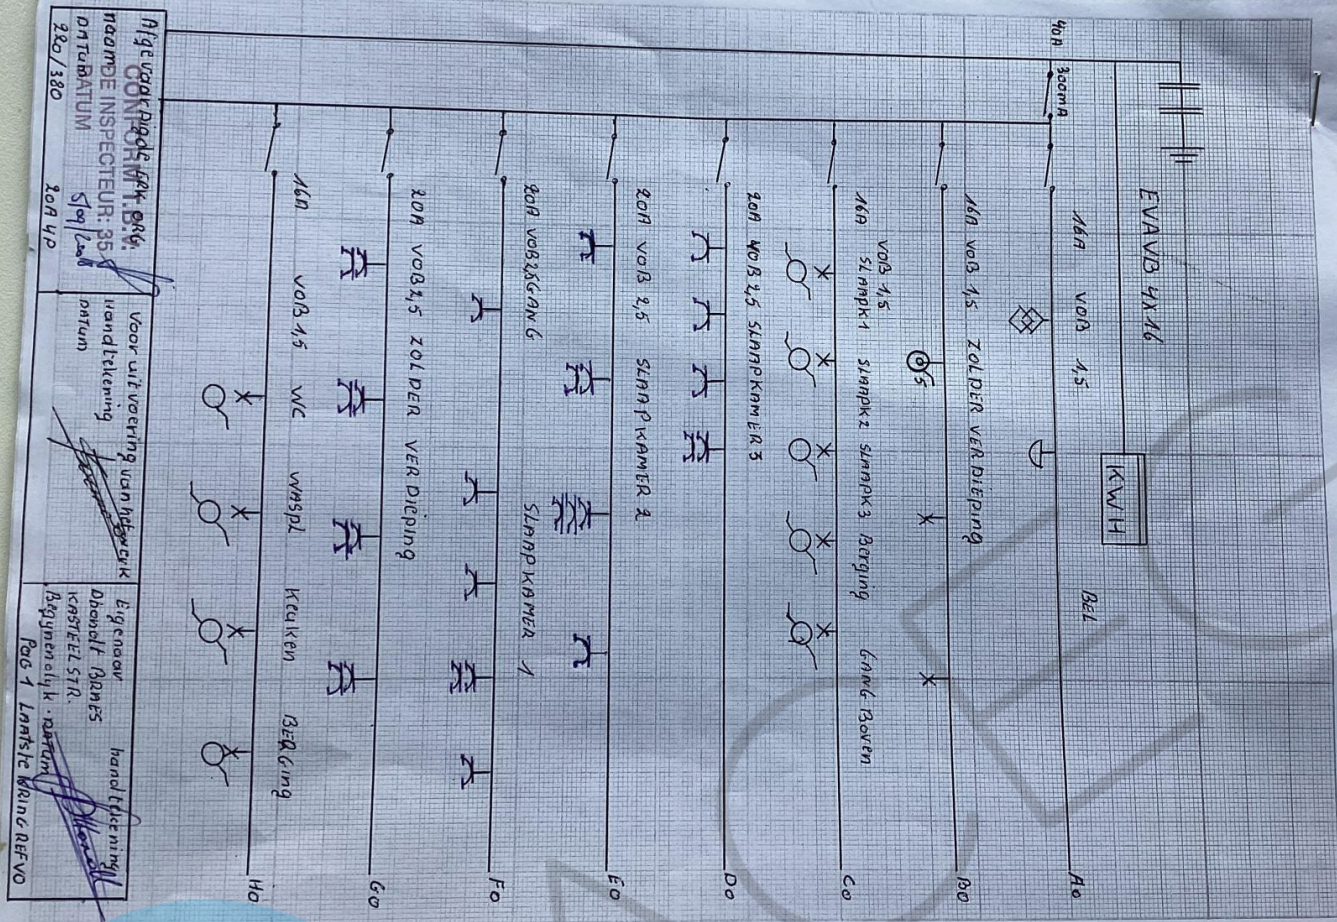 EVAVB 4X16
KWH
40A 300mA
16A VOB 1,5 BEL
A0
16A VOB 1,5 ZOLDER VERDIEPING
5
B0
16A VOB 1,5
SLAAPK1 SLAAPK2 SLAAPK3 Berging GANG Boven
C0
20A VOB 2,5 SLAAPKAMER 3
D0
20A VOB 2,5 SLAAPKAMER 2
E0
20A VOB 2,5 GANG SLAAPKAMER 1
F0
20A VOB 2,5 ZOLDER VERDIEPING
G0
16A VOB 1,5 WC WASPL Keuken BERGing
H0
Afgevaardigde ERK ORG.
CONFORM
naam
DE INSPECTEUR: 35
DATUM
DATUM
220/380 20A 4P
Voor uitvoering van het werk
Handtekening
DATUM
Eigenaar handtekening
Dhondt BRAES
KASTEELSTR.
DATUM
PAG 1